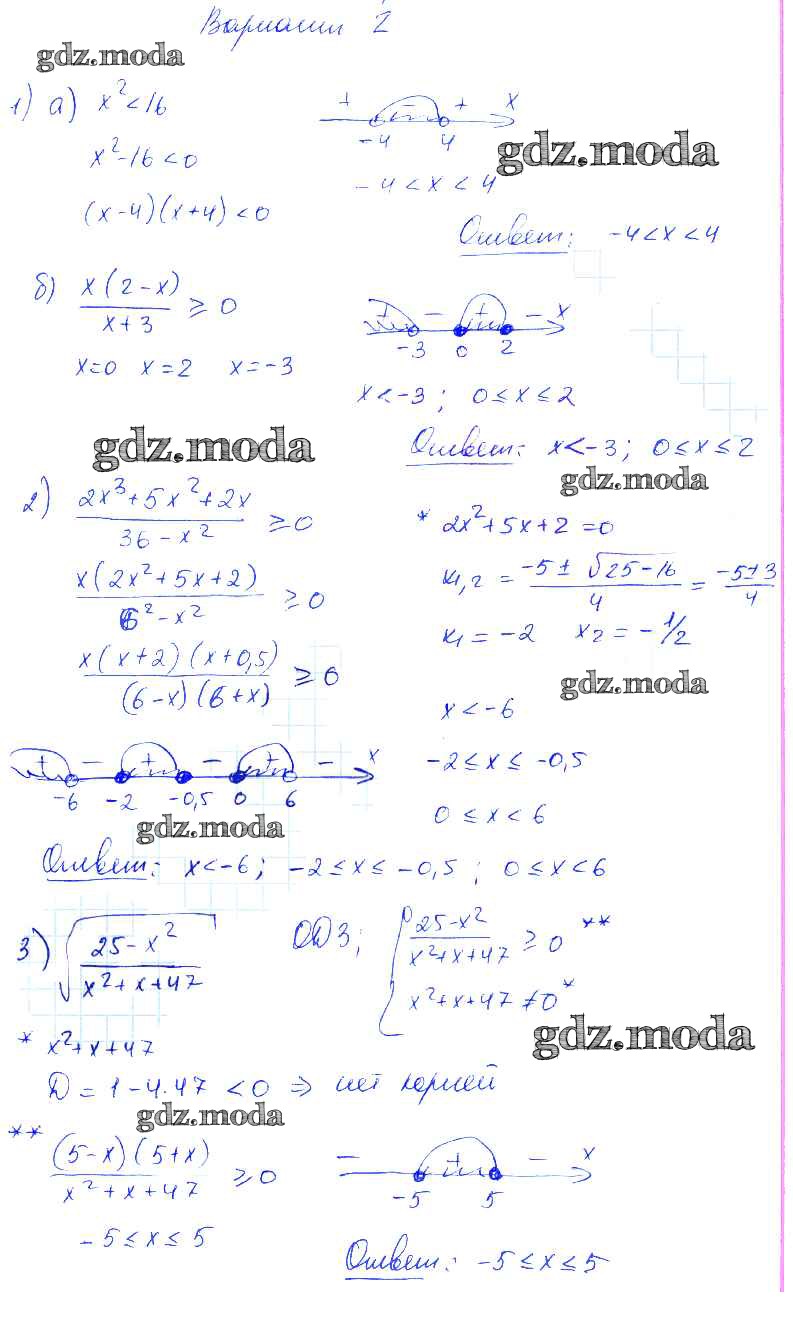 Вариант 2
gdz.moda
1) а) x² < 16
x² - 16 < 0
(x-4)(x+4) < 0
+ - + x
-4 4
-4 < x < 4
gdz.moda
Ответ: -4 < x < 4
б) x(2-x) / x+3 ≥ 0
x=0 x=2 x=-3
+ - + - x
-3 0 2
x < -3; 0 ≤ x ≤ 2
Ответ: x < -3; 0 ≤ x ≤ 2
gdz.moda
gdz.moda
2) 2x³+5x²+2x / 36-x² ≥ 0
x(2x²+5x+2) / 6²-x² ≥ 0
x(x+2)(x+0,5) / (6-x)(6+x) ≥ 0
* 2x²+5x+2 = 0
x₁,₂ = -5 ± √25-16 / 4 = -5±3 / 4
x₁ = -2 x₂ = -1/2
gdz.moda
+ - + - + - x
-6 -2 -0,5 0 6
x < -6
-2 ≤ x ≤ -0,5
0 ≤ x < 6
gdz.moda
Ответ: x < -6; -2 ≤ x ≤ -0,5; 0 ≤ x < 6
3) √25-x² / x²+x+47
ОДЗ; { 25-x² / x²+x+47 ≥ 0 **
x²+x+47 ≠ 0 *
gdz.moda
* x²+x+47
D = 1-4·47 < 0 ⇒ нет корней
gdz.moda
** (5-x)(5+x) / x²+x+47 ≥ 0
- + - x
-5 5
-5 ≤ x ≤ 5
Ответ: -5 ≤ x ≤ 5